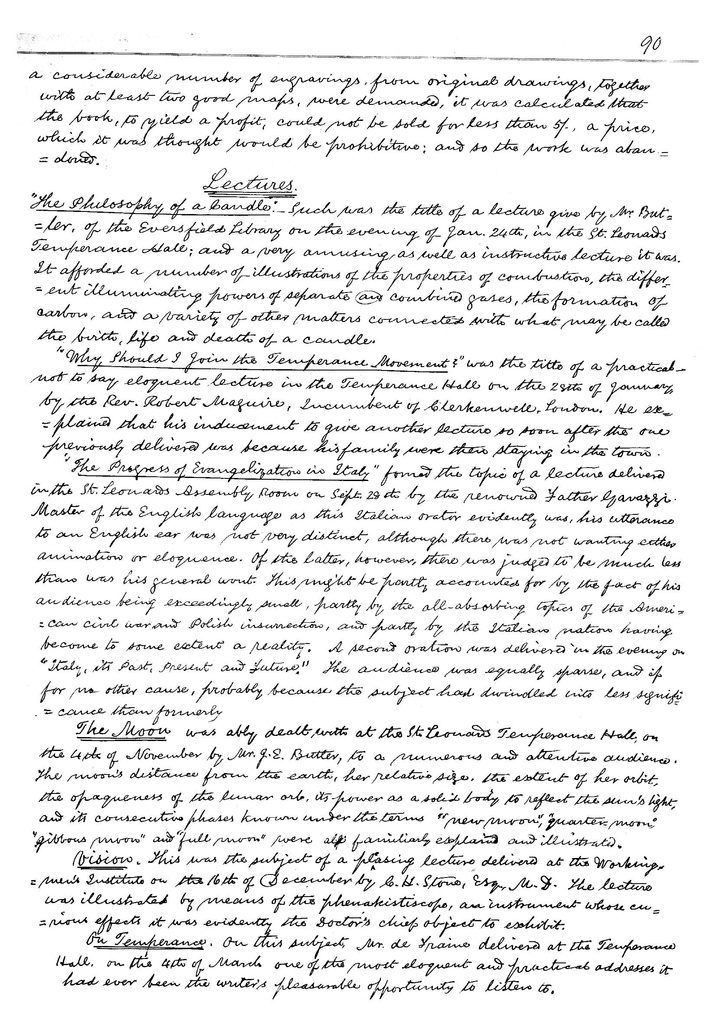 90
a considerable number of engravings, from original drawings, together
with at least two good maps, were demanded, it was calculated that
the book, to yield a profit, could not be sold for less than 5/-, a price,
which it was thought would be prohibitive; and so the work was aban-
=doned.
Lectures.
"The Philosophy of a Candle".- Such was the title of a lecture give by Mr. But-
=ler, of the Eversfield Library on the evening of Jan. 24th, in the St. Leonards
Temperance Hall; and a very amusing, as well as instructive lecture it was.
It afforded a number of illustrations of the properties of combustion, the differ-
=ent illuminating powers of separate and combined gases, the formation of
carbon, and a variety of other matters connected with what may be called
the birth, life and death of a candle.
"Why Should I Join the Temperance Movement?" was the title of a practical-
not to say eloquent lecture in the Temperance Hall on the 28th of January
by the Rev. Robert Maguire, Incumbent of Clerkenwell, London. He ex-
=plained that his inducement to give another lecture so soon after the one
previously delivered was because his family were then staying in the town.
"The Progress of Evangelization in Italy" fomed the topic of a lecture delivered
in the St. Leonards Assembly Room on Sept. 28th by the renowned Father Gavazzi.
Master of the English language as this Italian orator evidently was, his utterance
to an English ear was not very distinct, although there was not wanting either
animation or eloquence. Of the latter, however, there was judged to be much less
than was his general wont. This might be partly accounted for by the fact of his
audience being exceedingly small, partly by the all-absorbing topics of the Ameri-
=can civil war and Polish insurrection, and partly by the Italian nation having
become to some extent a reality. A second oration was delivered in the evening on
"Italy, its Past, Present and Future." The audience was equally sparse, and if
for no other cause, probably because the subject had dwindled into less signifi-
=cance than formerly
The Moon was ably dealt with at the St. Leonards Temperance Hall, on
the 4th of November by Mr. J. E. Butler, to a numerous and attentive audience.
The moon's distance from the earth, her relative size, the extent of her orbit,
the opaqueness of the lunar orb, its power as a solid body to reflect the sun's light,
and its consecutive phases known under the terms "new moon", "quarter-moon"
"gibbous moon" and "full moon" were all familiarly explained and illustrated.
Vision. This was the subject of a plasing lecture delivered at the Working-
=men's Institute on the 16th of December by C. H. Stone, Esq., M. D. The lecture
was illustrated by means of the phenakistiscope, an instrument whose cu-
=rious effects it was evidently the Doctor's chief object to exhibit.
On Temperance. On this subject, Mr. de Fraine delivered at the Temperance
Hall, on the 4th of March one of the most eloquent and practical addresses it
had ever been the writer's pleasurable opportunity to listen to.